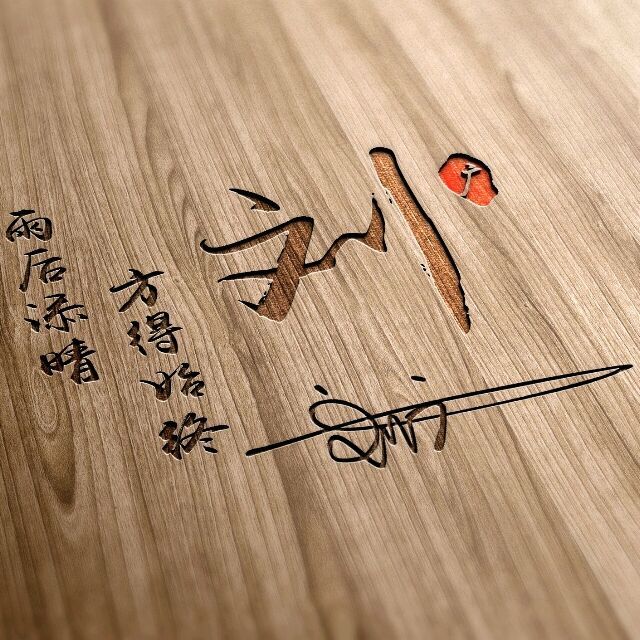 刘
雨后添晴
方得始终